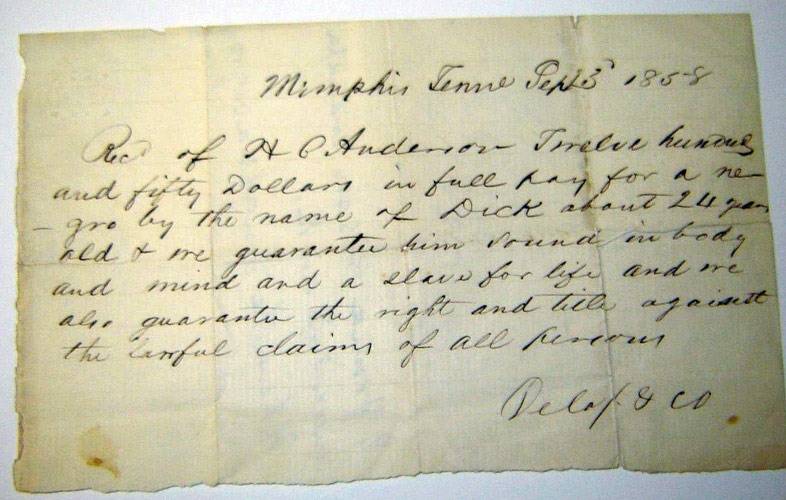 Memphis Tenne Sept 3d 1858
Recd of H C Anderson Twelve hundred
and fifty Dollars in full pay for a ne-
- gro by the name of Dick about 24 years
old & we guarantee him sound in body
and mind and a slave for life and we
also guarantee the right and title against
the lawful claims of all persons
& Co